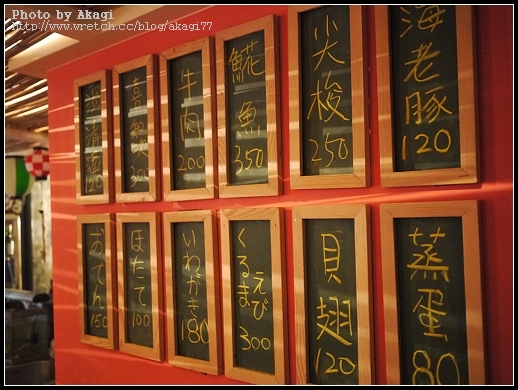 Photo by Akagi
http://www.wretch.cc/blog/akagi77
120
300
牛肉
200
𩸽魚
350
尖梭
250
海老豚
120
おでん
150
ほたて
100
いわがき
180
くるま
えび
300
貝翅
120
蒸蛋
80